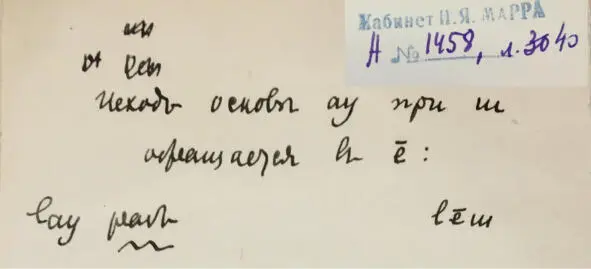 Кабинет Н.Я. МАРРА
А № 1458, л. 3040
Исходъ основы ау при ш
обращается въ ē :
lау
lēш